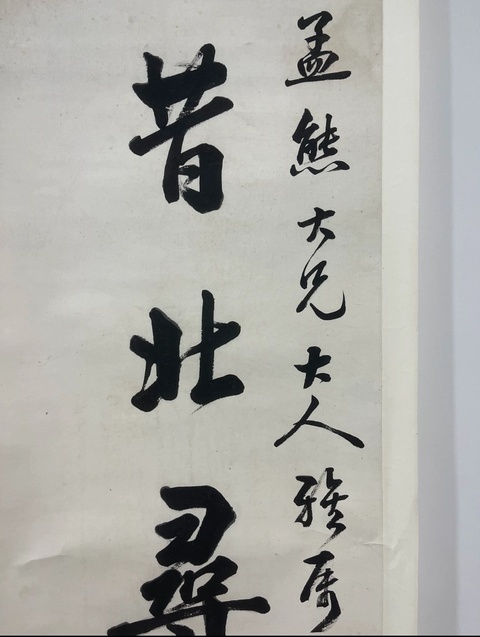 孟熊大兄大人雅属
昔北尋